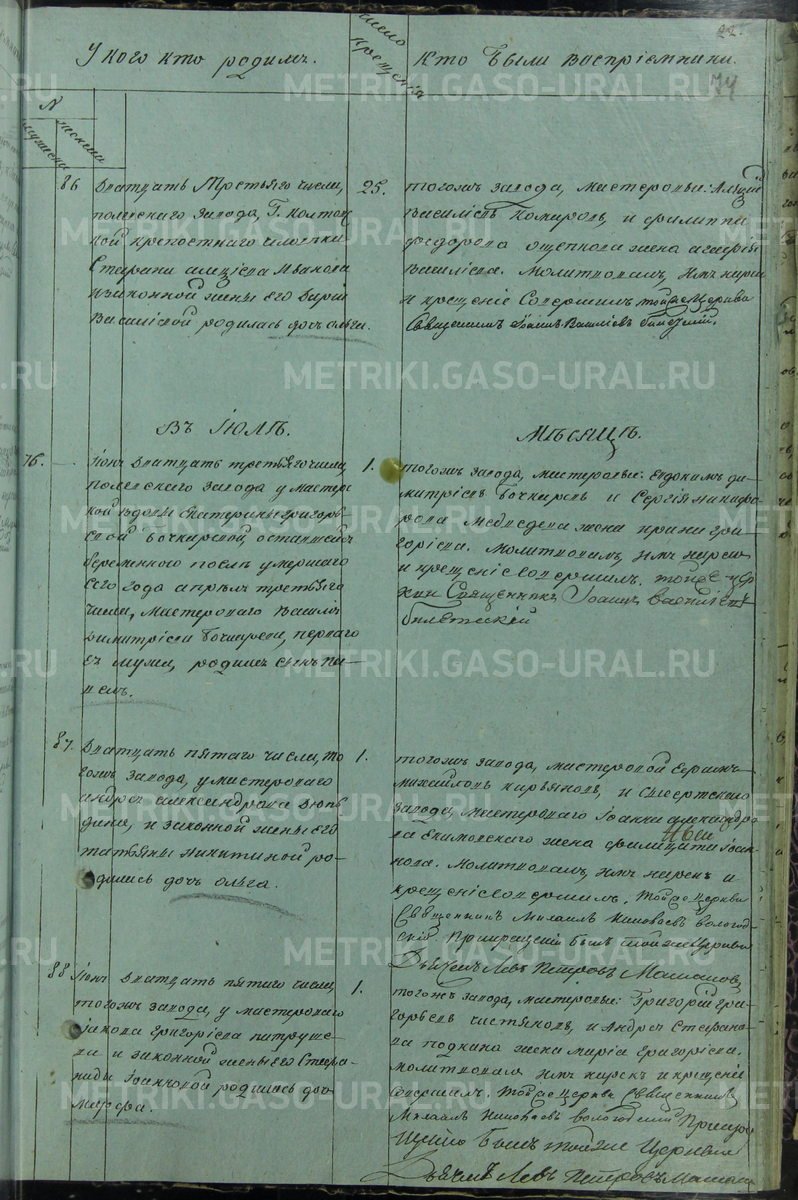 22.
74
У кого кто родилъ.
Число крещенія
Кто были воспріемники.
N
мужеска
женска
86
Дватцать третьяго числа,
полевскаго завода, Г.
крепостнаго
Иванова
изаконной жены его Дарьи
Василіевой родилась дочь ольга.
25.
тогожъ завода, мастеровые:
василіевъ Комаровъ, и филиппа
федорова жена агафья
Василіева. Молитвовалъ, имя нарекъ
и крещеніе Совершилъ тойже Церкви
Священникъ Іоаннъ Василіевъ
Въ Іюлѣ.
Мѣсяцѣ.
76.
Іюня Дватцать третьяго числа,
полевскаго завода у мастерс
кой вдовы Екатерины григорь
евой бочкаревой, оставшейся
беременного послѣ умершаго
сего года апреля третьяго
числа, Мастероваго Василья
Димитріева бочкарева, перваго
ея мужа, родился сынъ па
велъ.
1.
тогожъ завода, мастеровые: Евдокимъ ди
митріевъ бочкаревъ и Сергія никифо
рова Медведева жена ирина гри
горіева. Молитвовалъ, имя нарекъ
и крещеніе совершилъ. тойже цер
кви Священникъ Іоаннъ василіевъ
87.
Дватцать пятаго числа, то
гожъ завода, у мастероваго
андрея александрова
и законной жены его
татьяны никитиной ро
дилась дочь ольга.
1.
тогожъ завода, мастеровой
михайловъ и Сысертскаго
завода, мастероваго Іоанна александро
ва жена филицата Іоан
нова. Молитвовалъ, имя нарекъ и
крещеніе совершилъ. Тойже церкви
Священникъ Михаилъ Николаевъ вологод
скій. При крещеніи былъ тойже Церкви
Дьячекъ Левъ Петровъ
88
Іюня Дватцать пятаго числа,
тогожъ завода, у мастероваго
іакова григоріева патруше
ва и законной жены его Стефа
ниды Іоанновой родилась дочь
Марфа.
1.
тогожъ завода, мастеровые: Григорій гри
горьевъ чистяковъ, и Андрея Стефано
ва жена марія григоріева.
молитвовалъ имя нарекъ и крещеніе
совершилъ. Тойже церкви Священникъ
Михаилъ Николаевъ вологодскій При кре
щеніи былъ тойже Церкви
Дьячекъ Левъ Петровъ
METRIKI.GASO-URAL.RU